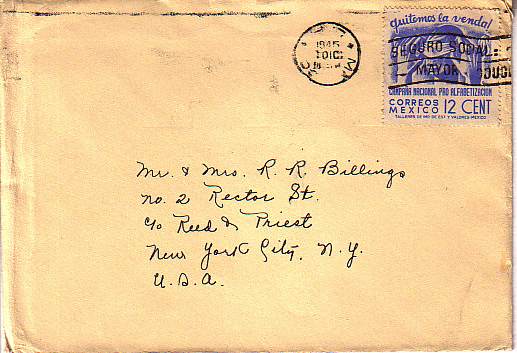 quitemos la venda!
1945
DIC
SEGURO SOCIAL
MAYOR
CAMPAÑA NACIONAL PRO ALFABETIZACION
CORREOS
MEXICO 12 CENT
TALLERES DE IMP. DE EST. Y VALORES-MEXICO
Mr. & Mrs. R. R. Billings
No. 2 Rector St.
c/o Reed & Priest
New York City, N.Y.
U.S.A.